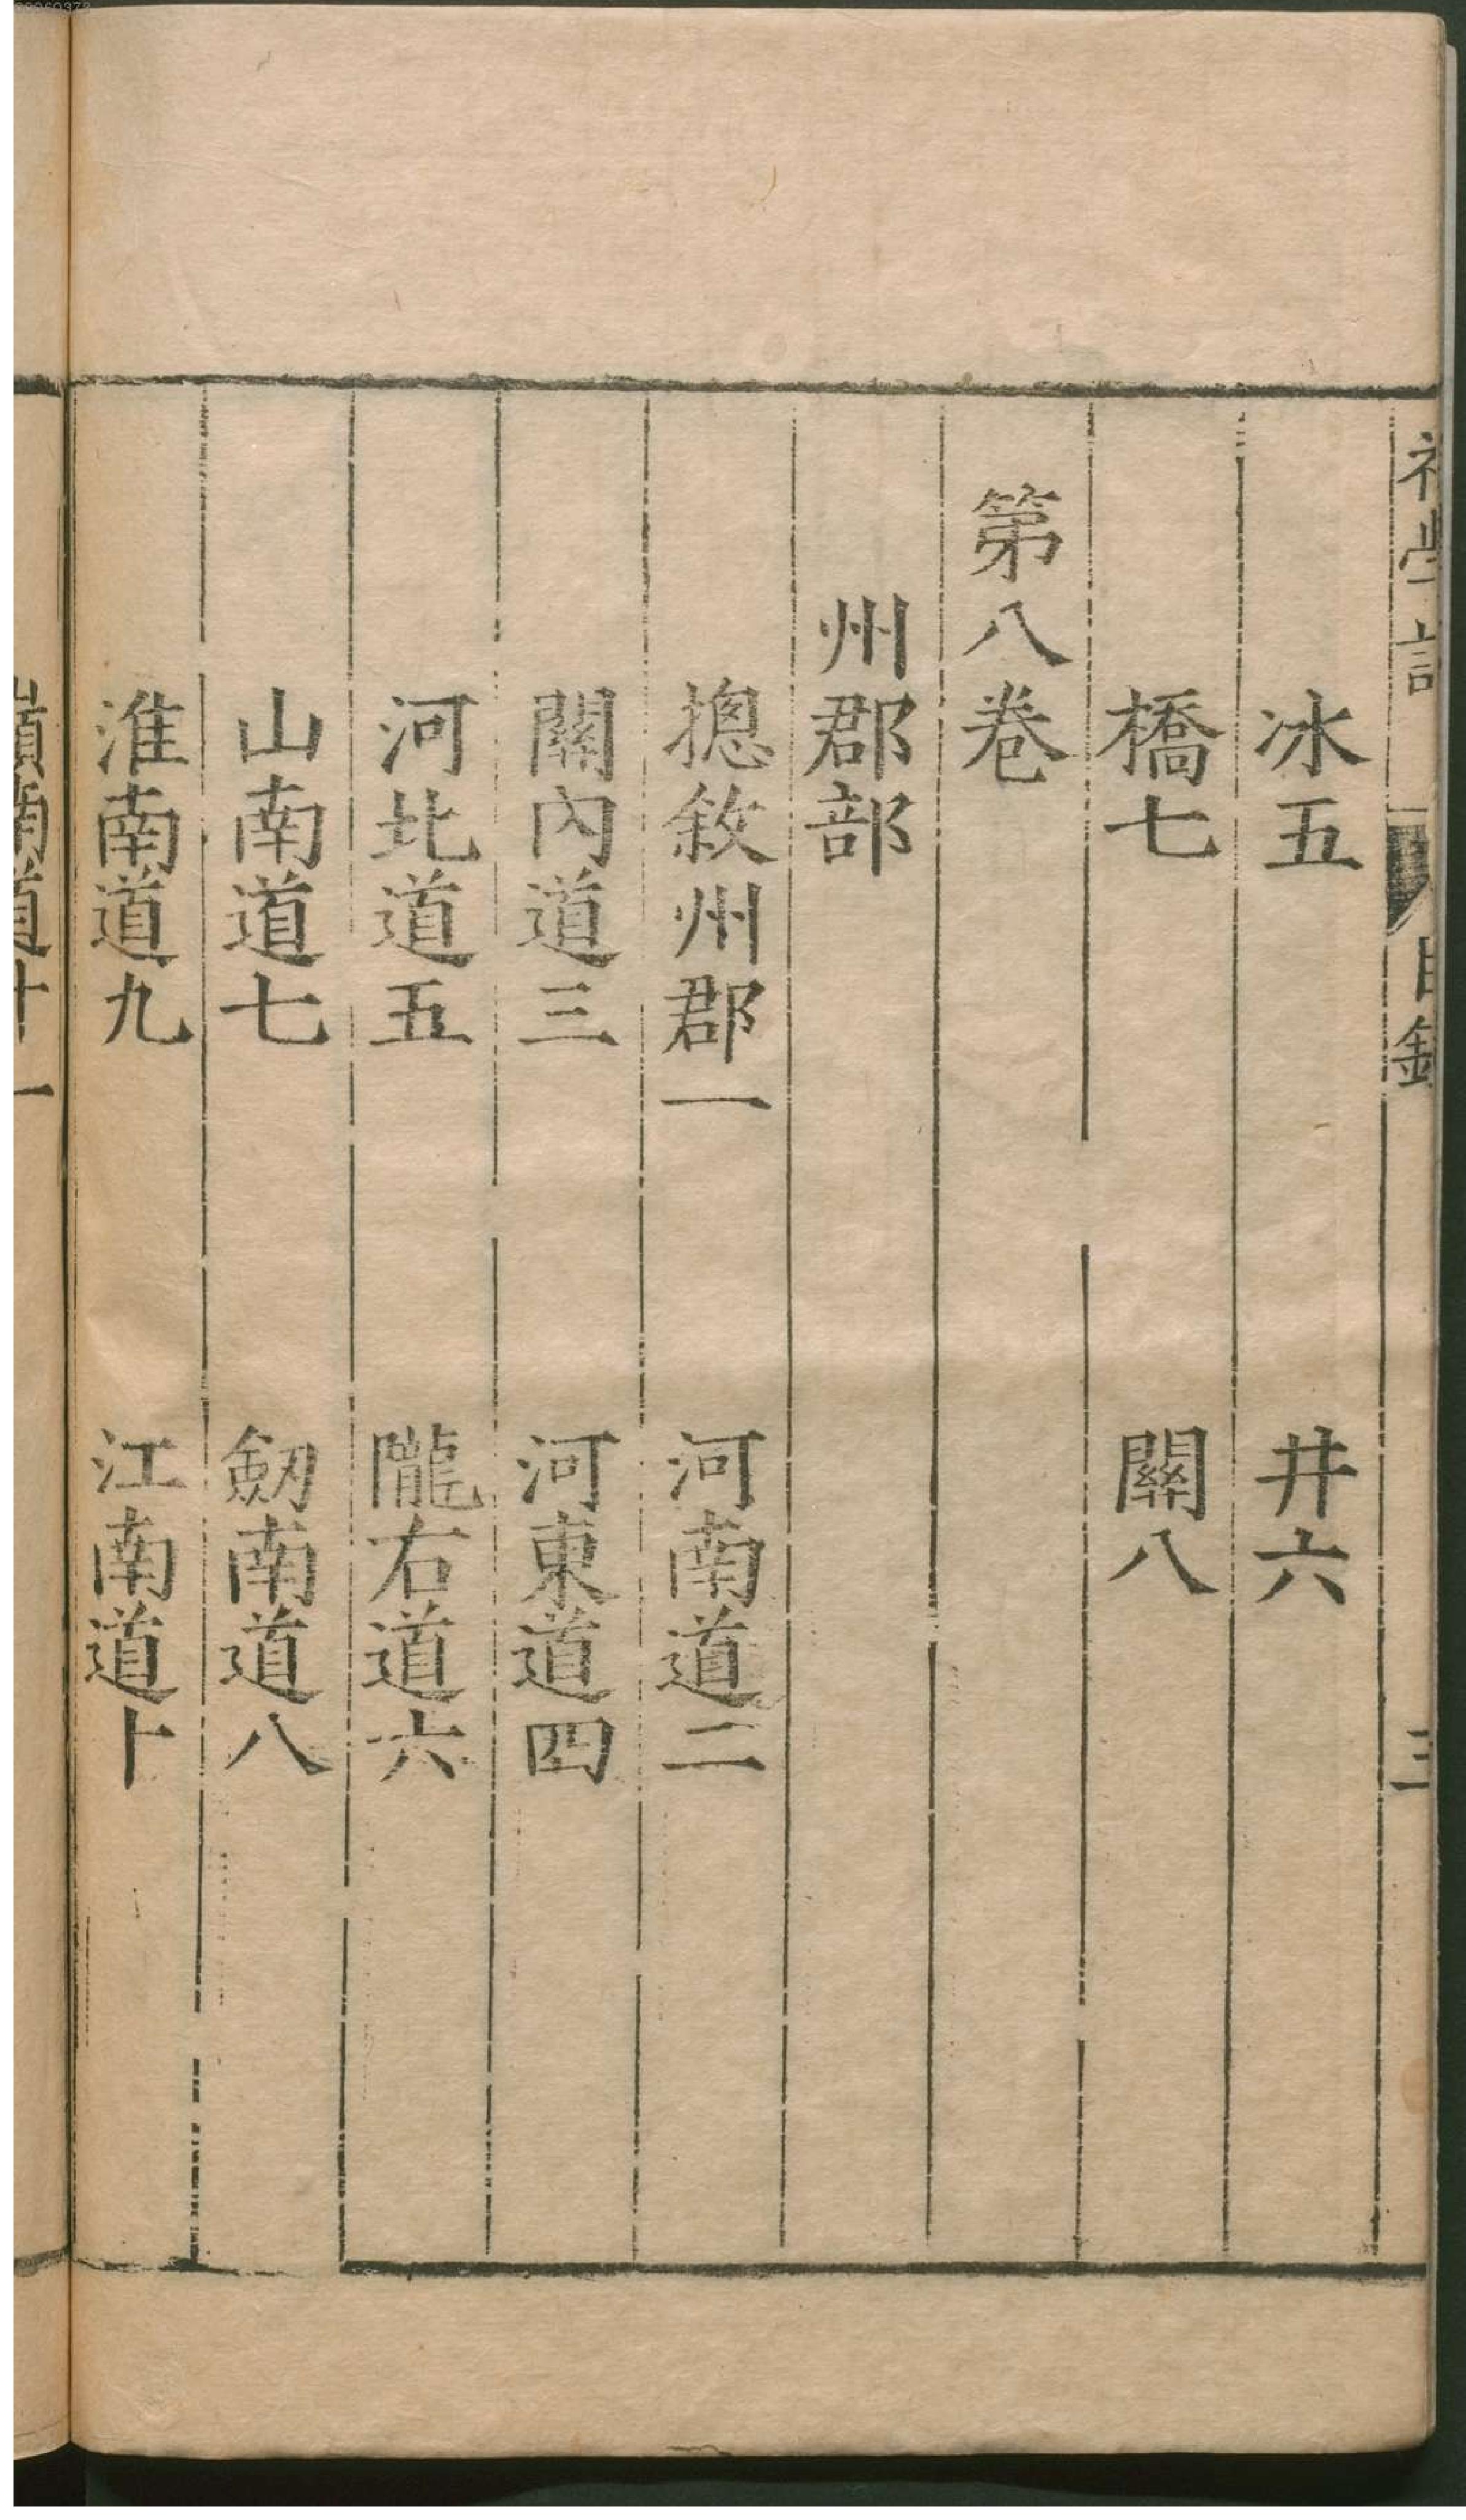 初學記 目錄 三
冰五 井六
橋七 關八
第八卷
州郡部
揔敘州郡一 河南道二
關內道三 河東道四
河北道五 隴右道六
山南道七 劒南道八
淮南道九 江南道十
嶺南道十一